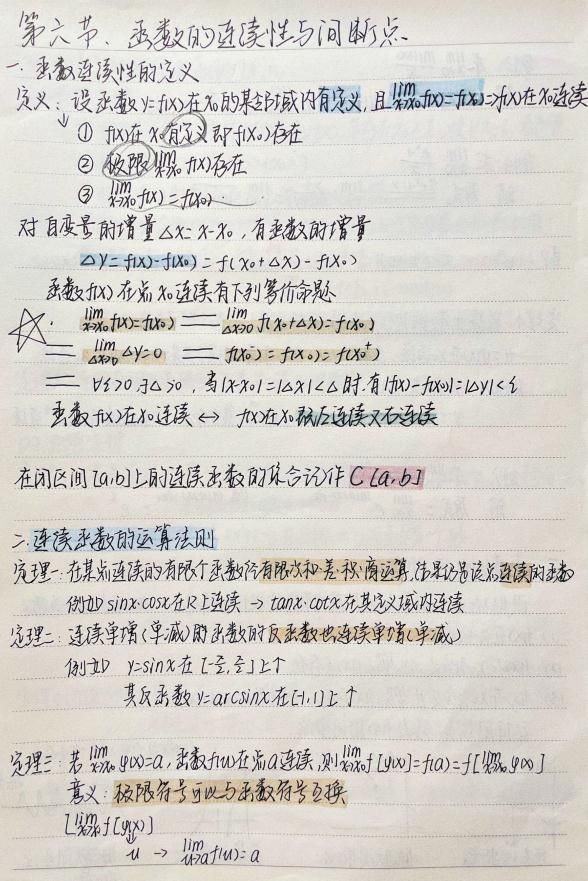 第六节、函数的连续性与间断点
一.函数连续性的定义
定义：设函数y=f(x)在x₀的某邻域内有定义,且lim x→x₀ f(x)=f(x₀)⇒f(x)在x₀连续
↓ ① f(x)在x₀有定义即f(x₀)存在
② 极限lim x→x₀ f(x)存在
③ lim x→x₀ f(x)=f(x₀)
对自变量的增量△x=x-x₀,有函数的增量
△y=f(x)-f(x₀)=f(x₀+△x)-f(x₀)
函数f(x)在点x₀连续有下列等价命题
☆· lim x→x₀ f(x)=f(x₀) == lim △x→0 f(x₀+△x)=f(x₀)
== lim △x→0 △y=0 == f(x₀⁻)=f(x₀)=f(x₀⁺)
== ∀ε>0,∃△>0,当|x-x₀|=|△x|<△时,有|f(x)-f(x₀)|=|△y|<ε
函数f(x)在x₀连续↔f(x)在x₀既左连续又右连续
在闭区间[a,b]上的连续函数的集合记作C[a,b]
二.连续函数的运算法则
定理一:在某点连续的有限个函数经有限次和·差·积·商运算,结果仍是该点连续的函数
例如 sinx·cosx在R上连续→tanx·cotx在其定义域内连续
定理二:连续单增(单减)的函数的反函数也连续单增(单减)
例如 y=sinx在[-π/2,π/2]上↑
其反函数y=arcsinx在[-1,1]上↑
定理三:若lim x→x₀ φ(x)=a,函数f(u)在点a连续,则lim x→x₀ f[φ(x)]=f(a)=f[lim x→x₀ φ(x)]
意义:极限符号可以与函数符号互换
[lim x→x₀ f[φ(x)]
u → lim u→a f(u)=a